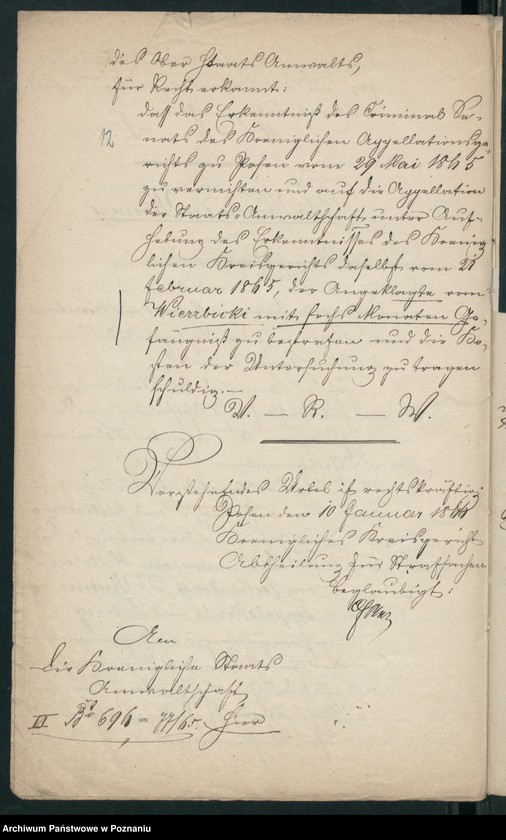 des Ober Staats Anwalts,
für Recht erkannt:
daß das Erkenntniß des Criminal Se-
12
nats des Koeniglichen Appellationsge-
richts zu Posen vom 29 Mai 1865
zu vernichten und auf die Appellation
der Staats-Anwaltschaft unter Auf-
hebung des Erkenntnisses des Koenig
lichen Kreisgerichts daselbst vom 21
Februar 1865, der Angeklagte von
Wierzbicki mit sechs Monaten Ge-
fängniß zu bestrafen und die Ko-
sten der Untersuchung zu tragen
schuldig.—
V. — R. — W.
Vorstehendes Urtel ist rechtskräftig
Posen den 10 Januar 1866
Koenigliches Kreisgericht
Abtheilung für Strafsachen
beglaubigt:
An
die Koenigliche Staats
Anwaltschaft
II 696 = 77/65. Hier
Archiwum Państwowe w Poznaniu